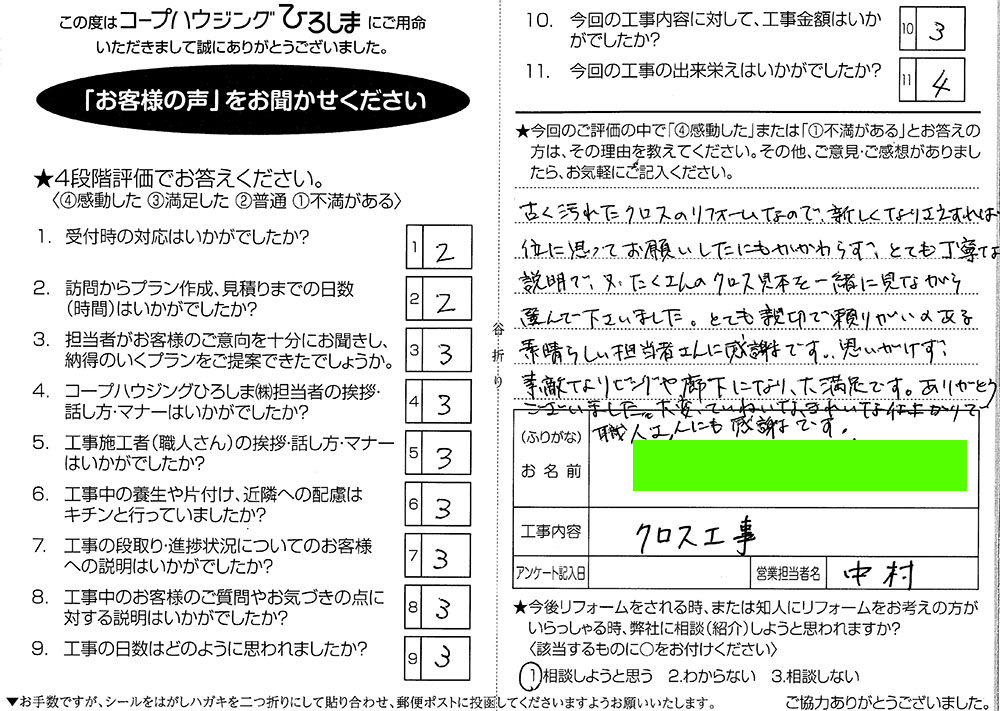 この度はコープハウジングひろしまにご用命
いただきまして誠にありがとうございました。
「お客様の声」をお聞かせください
★4段階評価でお答えください。
〈④感動した ③満足した ②普通 ①不満がある〉
1. 受付時の対応はいかがでしたか?
1 2
2. 訪問からプラン作成、見積りまでの日数
(時間)はいかがでしたか?
2 2
3. 担当者がお客様のご意向を十分にお聞きし、
納得のいくプランをご提案できたでしょうか。
3 3
4. コープハウジングひろしま㈱担当者の挨拶・
話し方・マナーはいかがでしたか?
4 3
5. 工事施工者(職人さん)の挨拶・話し方・マナー
はいかがでしたか?
5 3
6. 工事中の養生や片付け、近隣への配慮は
キチンと行っていましたか?
6 3
7. 工事の段取り・進捗状況についてのお客様
への説明はいかがでしたか?
7 3
8. 工事中のお客様のご質問やお気づきの点に
対する説明はいかがでしたか?
8 3
9. 工事の日数はどのように思われましたか?
9 3
▼お手数ですが、シールをはがしハガキを二つ折りにして貼り合わせ、郵便ポストに投函してくださいますようお願いいたします。
谷折り
10. 今回の工事内容に対して、工事金額はいか
がでしたか?
10 3
11. 今回の工事の出来栄えはいかがでしたか?
11 4
★今回のご評価の中で「④感動した」または「①不満がある」とお答えの
方は、その理由を教えてください。その他、ご意見・ご感想がありまし
たら、お気軽にご記入ください。
古く汚れたクロスのリフォームなので、新しくなりさえすれば
位に思ってお願いしたにもかかわらず、とても丁寧な
説明で、又、たくさんのクロス見本を一緒に見ながら
選んで下さいました。とても親切で頼りがいのある
素晴らしい担当者さんに感謝です。思いがけず、
素敵なリビングや廊下になり、大満足です。ありがとう
ございました。大変、ていねいな、きれいな仕上がりで
職人さんにも感謝です。
(ふりがな)
お名前
工事内容 クロス工事
アンケート記入日 営業担当者名 中村
★今後リフォームをされる時、または知人にリフォームをお考えの方が
いらっしゃる時、弊社に相談(紹介)しようと思われますか?
〈該当するものに○をお付けください〉
1.相談しようと思う 2.わからない 3.相談しない
ご協力ありがとうございました。